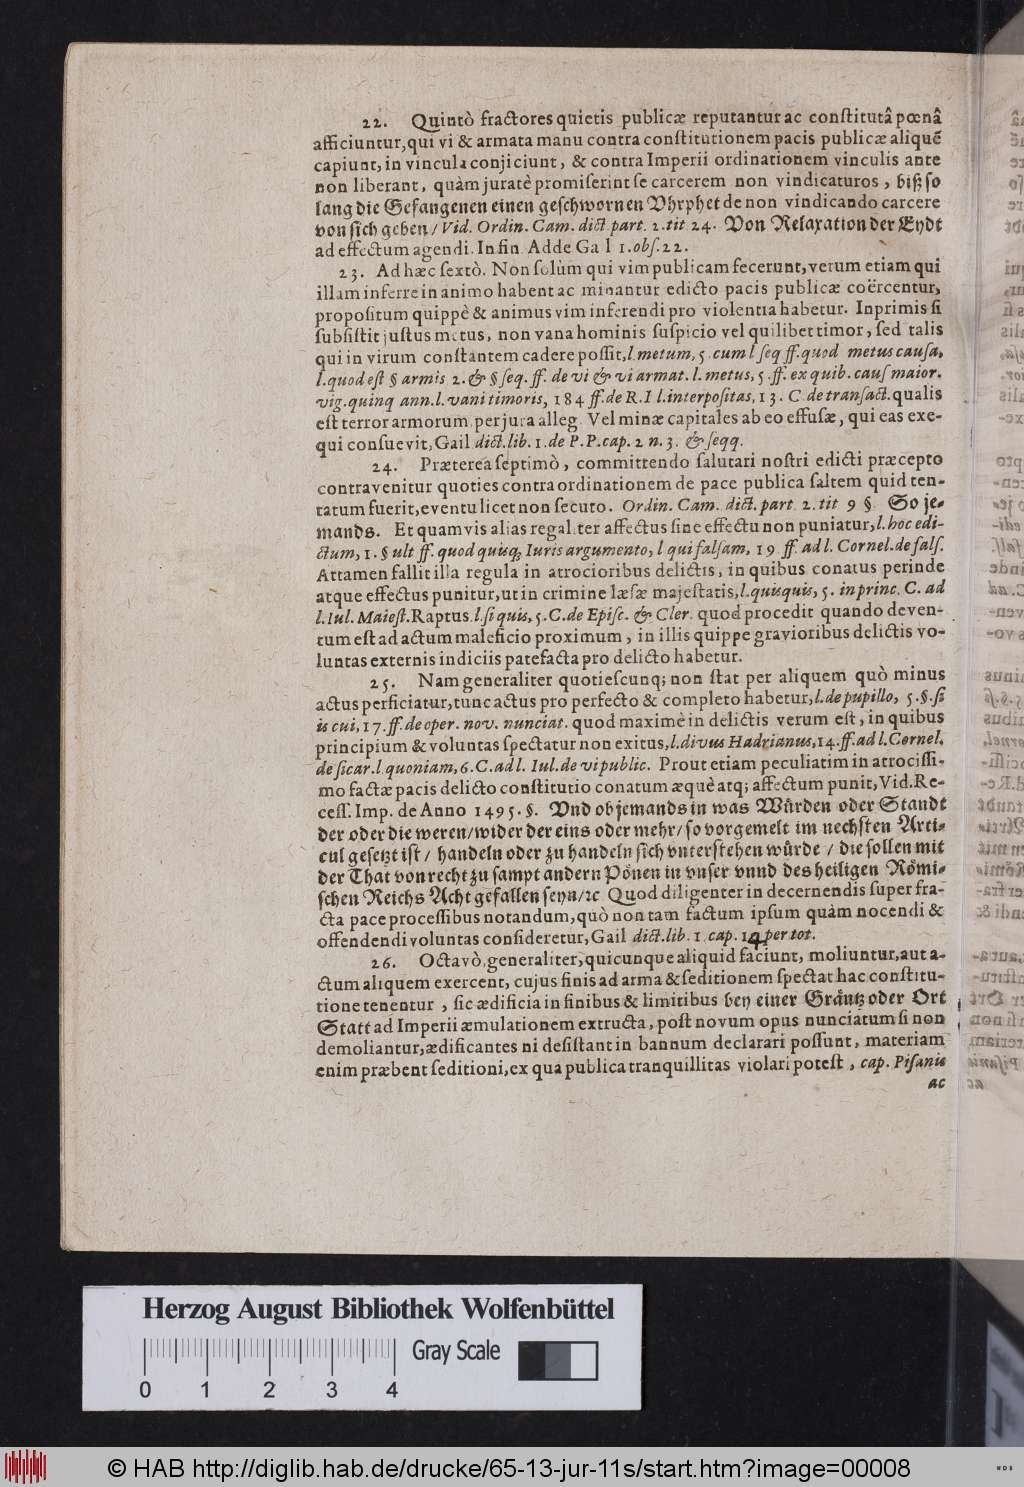 22. Quintò fractores quietis publicæ reputantur ac conſtitutâ pœnâ
afficiuntur, qui vi & armata manu contra conſtitutionem pacis publicæ aliquẽ
capiunt, in vincula conjiciunt, & contra Imperii ordinationem vinculis ante
non liberant, quàm juratè promiſerint ſe carcerem non vindicaturos, biß ſo
lang die Gefangenen einen geſchwornen Vhrphet de non vindicando carcere
von ſich geben / Vid. Ordin. Cam. dict. part. 2. tit 24. Von Relaxation der Eydt
ad effectum agendi. In fin. Adde Ga l 1. obſ. 22.
23. Ad hæc ſextò. Non ſolùm qui vim publicam fecerunt, verum etiam qui
illam inferre in animo habent ac minantur edicto pacis publicæ coërcentur,
propoſitum quippè & animus vim inferendi pro violentia habetur. Inprimis ſi
ſubſiſtit juſtus metus, non vana hominis ſuſpicio vel quilibet timor, ſed talis
qui in virum conſtantem cadere poſſit, l. metum, 5. cum l ſeq ff. quod metus cauſa,
l. quod eſt § armis 2. & § ſeq. ff. de vi & vi armat. l. metus, 5. ff. ex quib. cauſ maior.
vig. quinq ann. l. vani timoris, 184 ff. de R. I l. interpoſitas, 13. C. de tranſact. qualis
eſt terror armorum. per jura alleg. Vel minæ capitales ab eo effuſæ, qui eas exe-
qui conſuevit, Gail dict. lib. 1. de P. P. cap. 2 n. 3. & ſeqq.
24. Præterea ſeptimò, committendo ſalutari noſtri edicti præcepto
contravenitur quoties contra ordinationem de pace publica ſaltem quid ten-
tatum fuerit, eventu licet non ſecuto. Ordin. Cam. dict. part. 2. tit 9 §. So je-
mands. Et quamvis alias regal ter affectus ſine effectu non puniatur, l. hoc edi-
ctum, 1. § ult ff. quod quiſq; Iuris argumento, l qui falſam, 19 ff. ad l. Cornel. de falſ.
Attamen fallit illa regula in atrocioribus delictis, in quibus conatus perinde
atque effectus punitur, ut in crimine læſæ majeſtatis, l. quisquis, 5. in princ. C. ad
l. Iul. Maieſt. Raptus. l. ſi quis, 5. C. de Epiſc. & Cler. quod procedit quando deven-
tum eſt ad actum maleficio proximum, in illis quippe gravioribus delictis vo-
luntas externis indiciis patefacta pro delicto habetur.
25. Nam generaliter quotieſcunq; non ſtat per aliquem quò minus
actus perficiatur, tunc actus pro perfecto & completo habetur, l. de pupillo, 5. §. ſi
is cui, 17. ff. de oper. nov. nunciat. quod maximè in delictis verum eſt, in quibus
principium & voluntas ſpectatur non exitus, l. divus Hadrianus, 14. ff. ad l. Cornel.
de ſicar. l quoniam, 6. C. ad l. Iul. de vi public. Prout etiam peculiatim in atrociſſi-
mo factæ pacis delicto conſtitutio conatum æquè atq; affectum punit, Vid. Re-
ceſſ. Imp. de Anno 1495. §. Vnd ob jemands in was Wůrden oder Standt
der oder die weren / wider der eins oder mehr / ſo vorgemelt im nechſten Arti-
cul geſetzt iſt / handeln oder zu handeln ſich vnterſtehen wůrde / die ſollen mit
der That von recht zu ſampt andern Pönen in vnſer vnnd des heiligen Römi-
ſchen Reichs Acht gefallen ſeyn / ꝛc Quod diligenter in decernendis ſuper fra-
cta pace proceſſibus notandum, quò non tam factum ipſum quàm nocendi &
offendendi voluntas conſideretur, Gail dict. lib. 1. cap. 14 per tot.
26. Octavò, generaliter, quicunque aliquid faciunt, moliuntur, aut a-
ctum aliquem exercent, cujus finis ad arma & ſeditionem ſpectat hac conſtitu-
tione tenentur, ſic ædificia in finibus & limitibus bey einer Gräntz oder Ort
Statt ad Imperii æmulationem extructa, poſt novum opus nunciatum ſi non
demoliantur, ædificantes ni deſiſtant in bannum declarari poſſunt, materiam
enim præbent ſeditioni, ex qua publica tranquillitas violari poteſt, cap. Piſanis
ac
Herzog August Bibliothek Wolfenbüttel
Gray Scale
0 1 2 3 4
© HAB http://diglib.hab.de/drucke/65-13-jur-11s/start.htm?image=00008